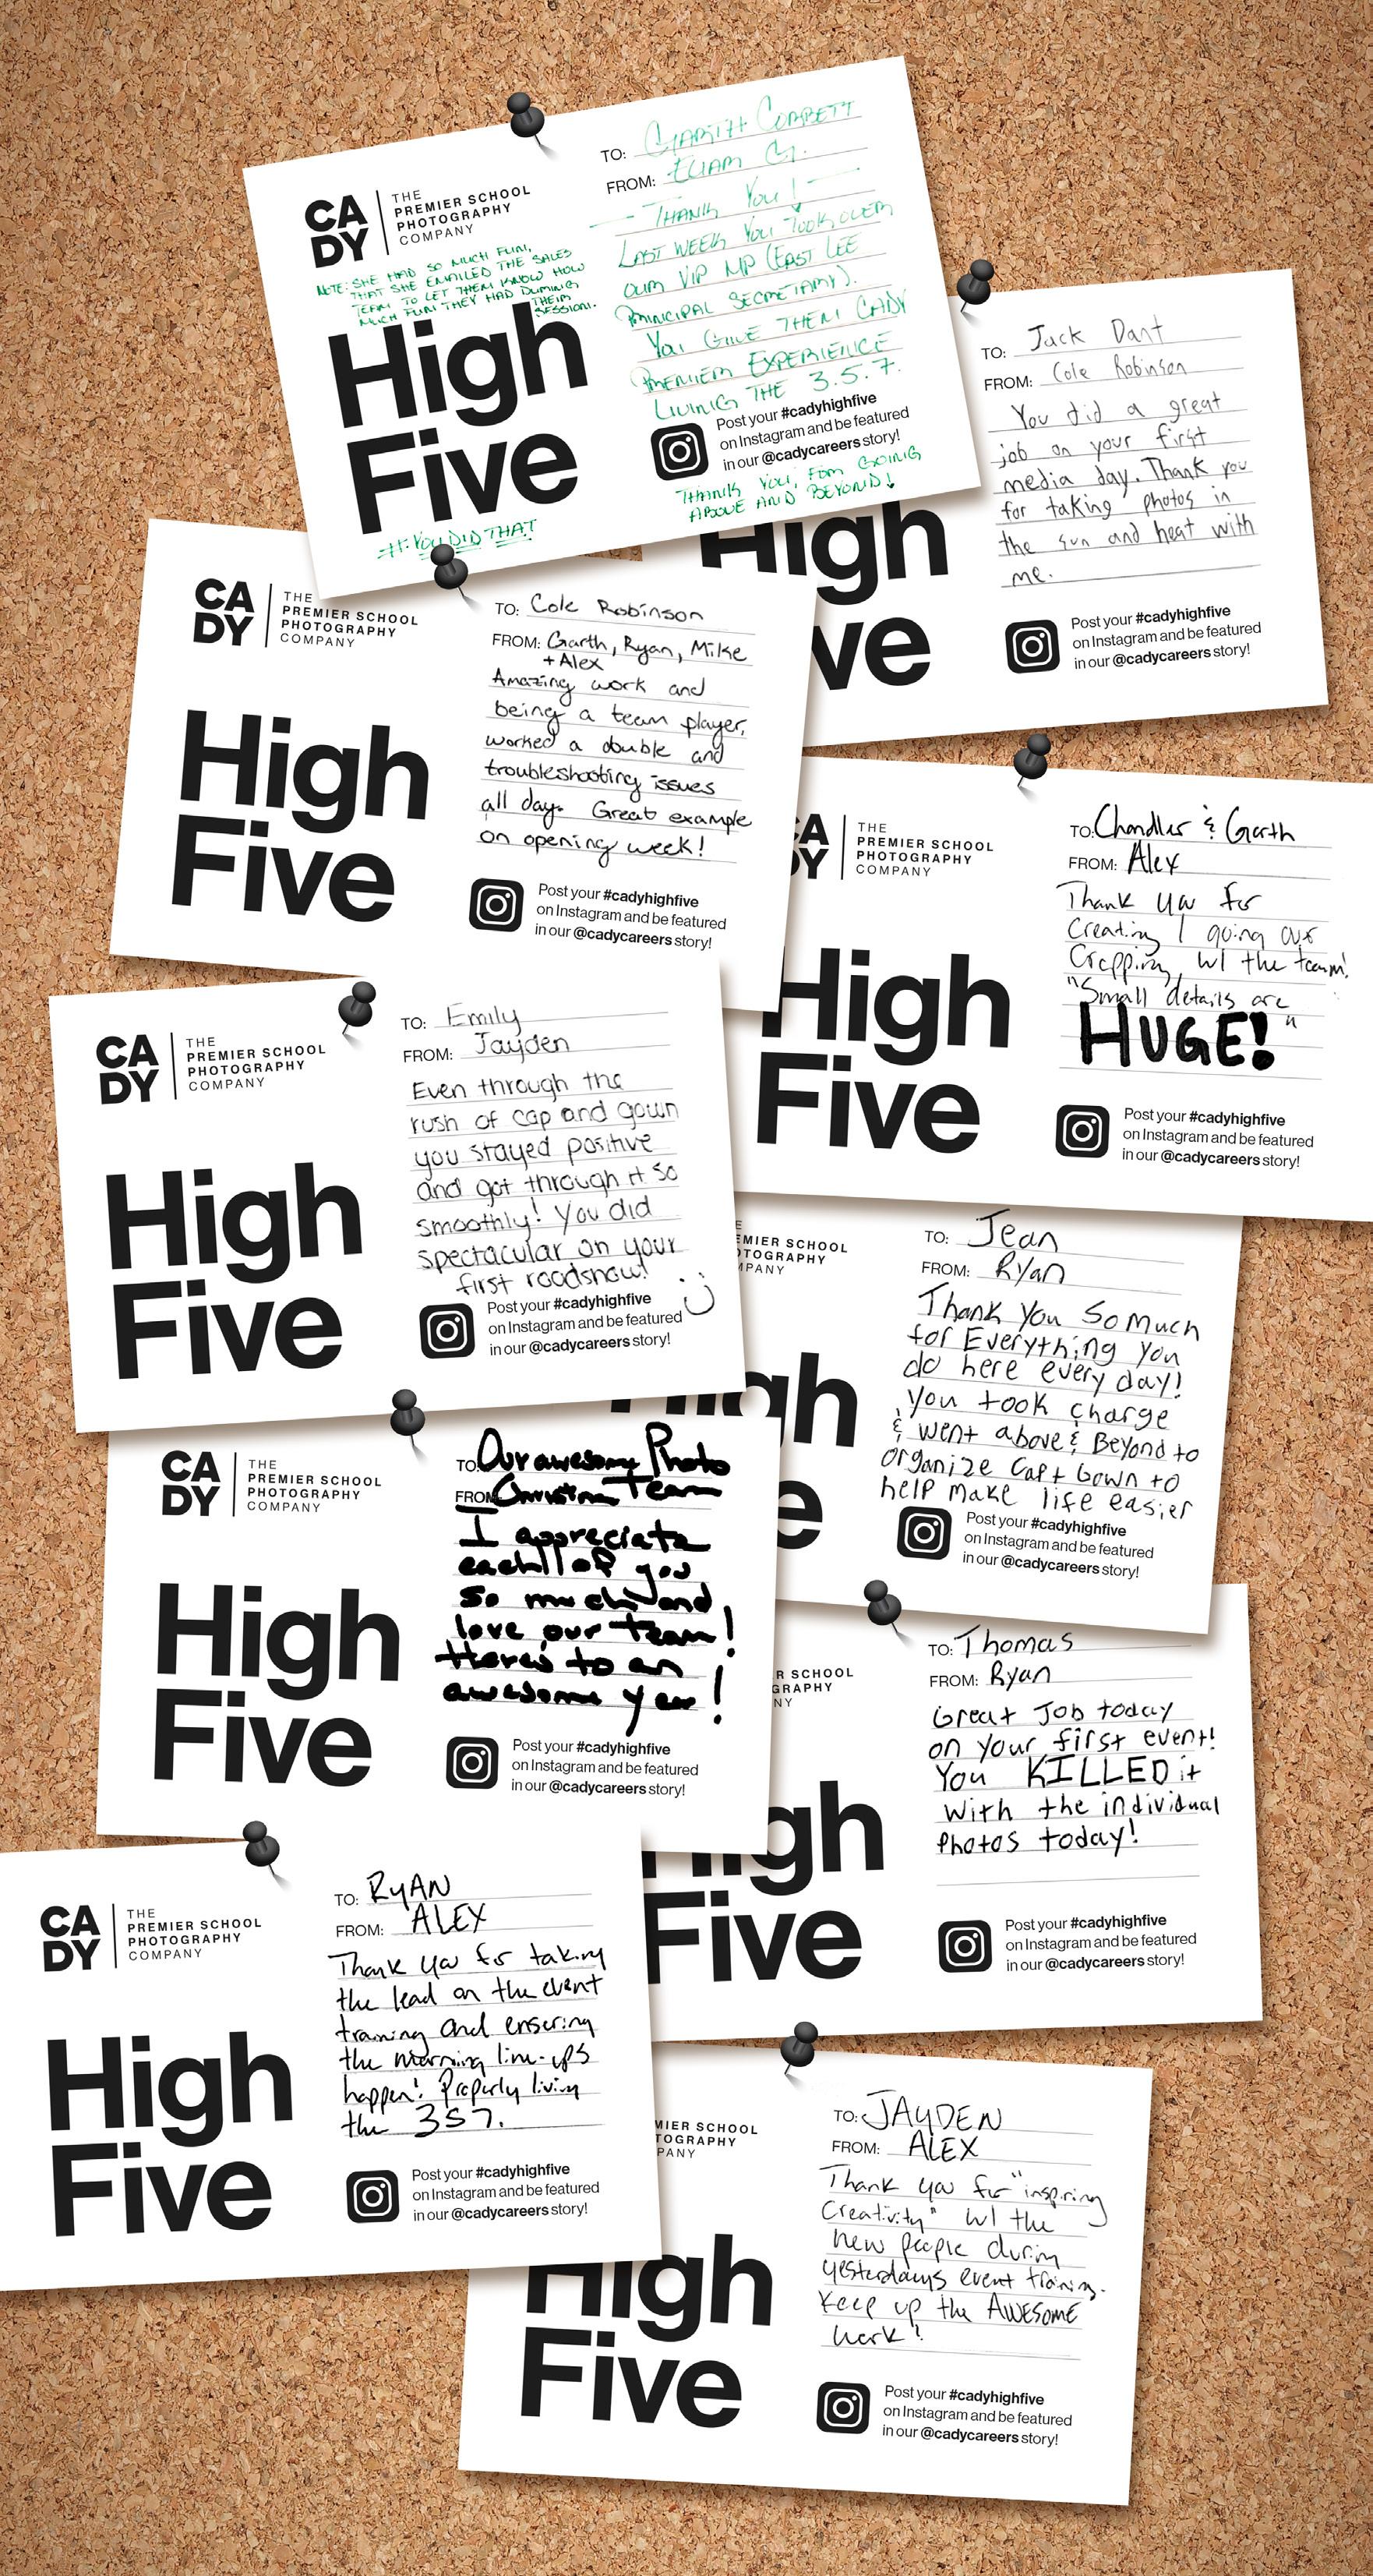 CA
DY
THE
PREMIER SCHOOL
PHOTOGRAPHY
COMPANY
NOTE: SHE HAD SO MUCH FUN,
THAT SHE EMAILED THE SALES
TEAM TO LET THEM KNOW HOW
MUCH FUN THEY HAD DURING
THEIR
SESSION.
High
Five
#YOU DID THAT
TO: GARTH CORBETT
FROM: G.
THANK YOU!
LAST WEEK YOU TOOK OVER
OUR VIP MP (EAST LEE
PRINCIPAL SECRETARY).
YOU GIVE THEM CADY
PREMIER EXPERIENCE
LIVING THE 3.5.7.
Post your #cadyhighfive
on Instagram and be featured
in our @cadycareers story!
THANK YOU, FOR GOING
ABOVE AND BEYOND!
High
ve
TO: Jack Dant
FROM: Cole Robinson
You did a great
job on your first
media day. Thank you
for taking photos in
the sun and heat with
me.
Post your #cadyhighfive
on Instagram and be featured
in our @cadycareers story!
CA
DY
THE
PREMIER SCHOOL
PHOTOGRAPHY
COMPANY
High
Five
TO: Cole Robinson
FROM: Garth, Ryan, Mike
+ Alex
Amazing work and
being a team player,
worked a double and
troubleshooting issues
all day. Great example
on opening week!
Post your #cadyhighfive
on Instagram and be featured
in our @cadycareers story!
A
DY
THE
PREMIER SCHOOL
PHOTOGRAPHY
COMPANY
High
Five
TO: Chandler & Garth
FROM: Alex
Thank you for
creating / going over
Cropping w/ the team!
"Small details are
HUGE!"
Post your #cadyhighfive
on Instagram and be featured
in our @cadycareers story!
CA
DY
THE
PREMIER SCHOOL
PHOTOGRAPHY
COMPANY
High
Five
TO: Emily
FROM: Jayden
Even through the
rush of cap and gown
you stayed positive
and got through it so
smoothly! You did
spectacular on your
first roadshow!
Post your #cadyhighfive
on Instagram and be featured
in our @cadycareers story!
E
EMIER SCHOOL
OTOGRAPHY
MPANY
gh
e
TO: Jean
FROM: Ryan
Thank You So Much
for Everything You
do here every day!
You took charge
& went above & Beyond to
organize Cap + Gown to
help make life easier
Post your #cadyhighfive
on Instagram and be featured
in our @cadycareers story!
CA
DY
THE
PREMIER SCHOOL
PHOTOGRAPHY
COMPANY
High
Five
TO: Our awesome Photo
Team
FROM: Christina
I appreciate
each of you
so much and
love our team!
Here's to an
awesome year!
Post your #cadyhighfive
on Instagram and be featured
in our @cadycareers story!
R SCHOOL
GRAPHY
NY
High
Five
TO: Thomas
FROM: Ryan
Great Job today
on your first event!
You KILLED it
with the individual
Photos today!
Post your #cadyhighfive
on Instagram and be featured
in our @cadycareers story!
CA
DY
THE
PREMIER SCHOOL
PHOTOGRAPHY
COMPANY
High
Five
TO: RYAN
FROM: ALEX
Thank you for taking
the lead on the event
training and ensuring
the morning line-ups
happen! Properly living
the 357.
Post your #cadyhighfive
on Instagram and be featured
in our @cadycareers story!
MIER SCHOOL
TOGRAPHY
PANY
High
Five
TO: JAYDEN
FROM: ALEX
Thank you for "inspiring
creativity" w/ the
new people during
yesterdays event training.
Keep up the AWESOME
work!
Post your #cadyhighfive
on Instagram and be featured
in our @cadycareers story!